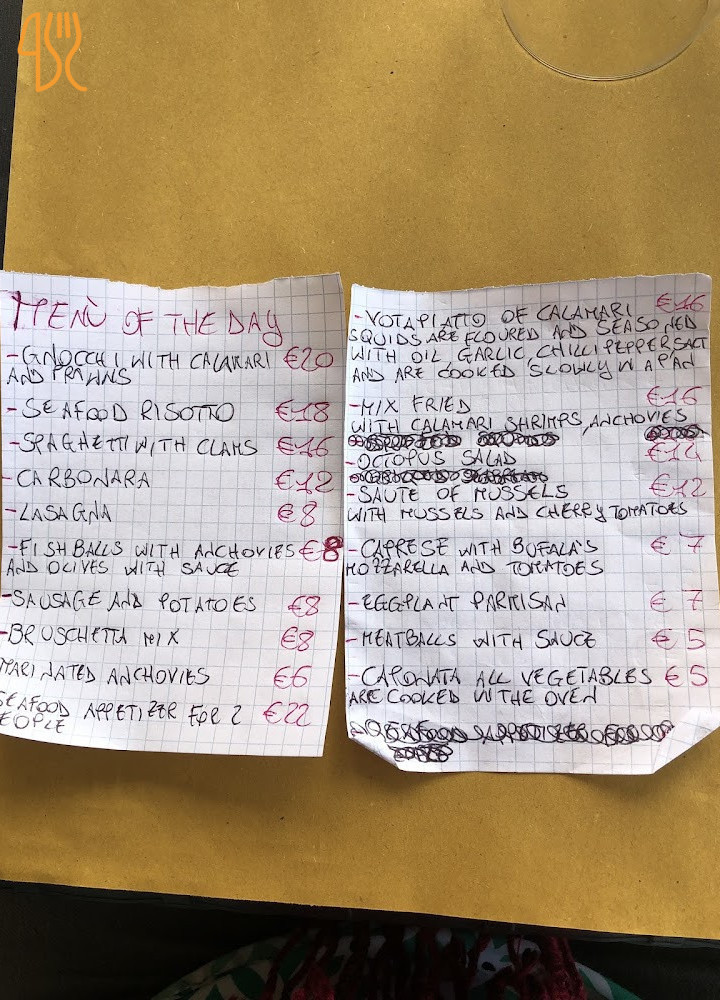 MENÙ OF THE DAY
-GNOCCHI WITH CALAMARI €20
AND PRAWNS
-SEAFOOD RISOTTO €18
-SPAGHETTI WITH CLAMS €16
-CARBONARA €12
-LASAGNA €8
-FISHBALLS WITH ANCHOVIES €8
AND OLIVES WITH SAUCE
-SAUSAGE AND POTATOES €8
-BRUSCHETTA MIX €8
MARINATED ANCHOVIES €6
SEAFOOD APPETIZER FOR 2 €22
EOPLE
-VOTAPIATTO OF CALAMARI €16
SQUIDS ARE FLOURED AND SEASONED
WITH OIL GARLIC, CHILLI PEPPER SALT
AND ARE COOKED SLOWLY IN A PAN
-MIX FRIED €16
WITH CALAMARI SHRIMPS, ANCHOVIES
-OCTOPUS SALAD €14
-SAUTE OF MUSSELS €12
WITH MUSSELS AND CHERRY TOMATOES
-CAPRESE WITH BUFALA'S € 7
MOZZARELLA AND TOMATOES
-EGGPLANT PARMISAN € 7
-MEATBALLS WITH SAUCE € 5
-CAPONATA ALL VEGETABLES € 5
ARE COOKED IN THE OVEN